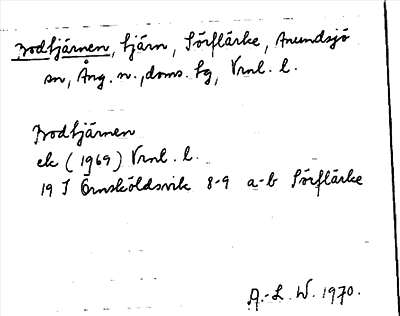 Brodtjärnen, tjärn, Sörflärke, Anundsjö
sn, Ång. n., doms. tg, Vrnl. l.
Brodtjärnen
ek (1969) Vrnl. l.
19 I Örnsköldsvik 8-9 a-b Sörflärke
A.-L. W. 1970.